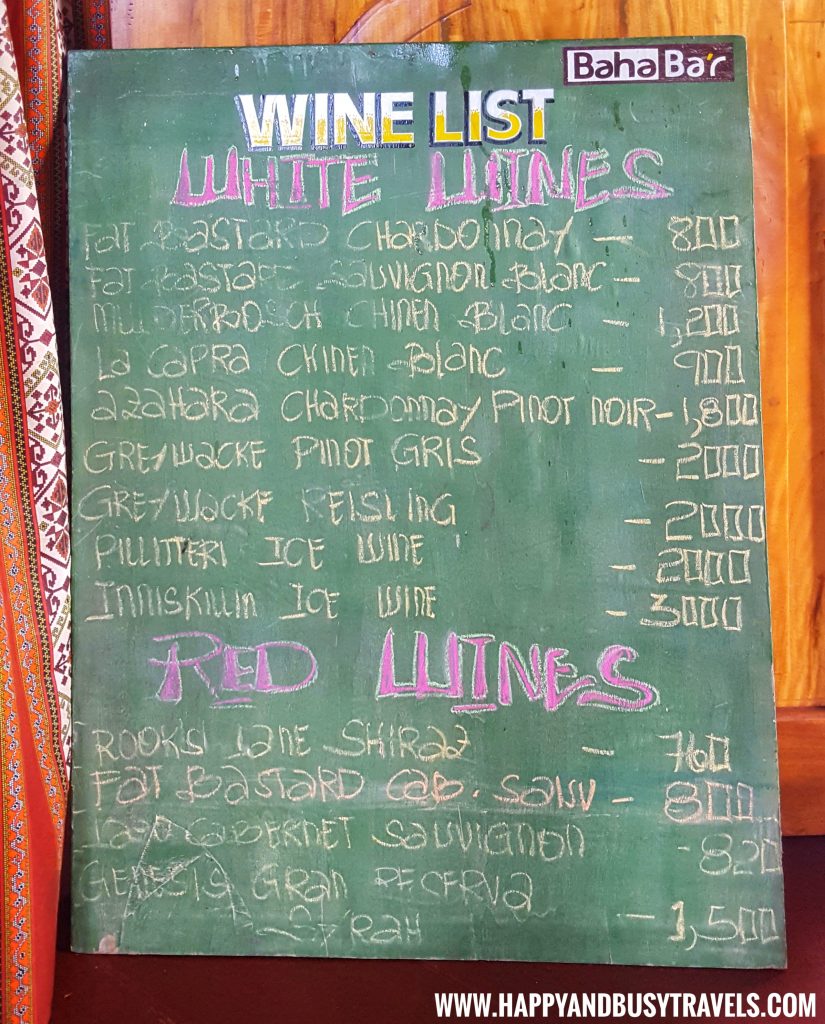 Baha Bar
WINE LIST
WHITE WINES
FAT BASTARD CHARDONNAY - 800
FAT BASTARD SAUVIGNON BLANC - 800
MULDERBOSCH CHINEN BLANC - 1,200
LA CAPRA CHINEN BLANC - 900
AZAHARA CHARDONNAY PINOT NOIR - 1,800
GREYWACKE PINOT GRIS - 2000
GREYWACKE REISLING - 2000
PILLITTERI ICE WINE - 2000
INNISKILLIN ICE WINE - 3000
RED WINES
ROOKS LANE SHIRAZ - 760
FAT BASTARD CAB. SAUV - 800
CABERNET SAUVIGNON - 820
GENESIS GRAN RECERVA
SYRAH - 1,500
WWW.HAPPYANDBUSYTRAVELS.COM